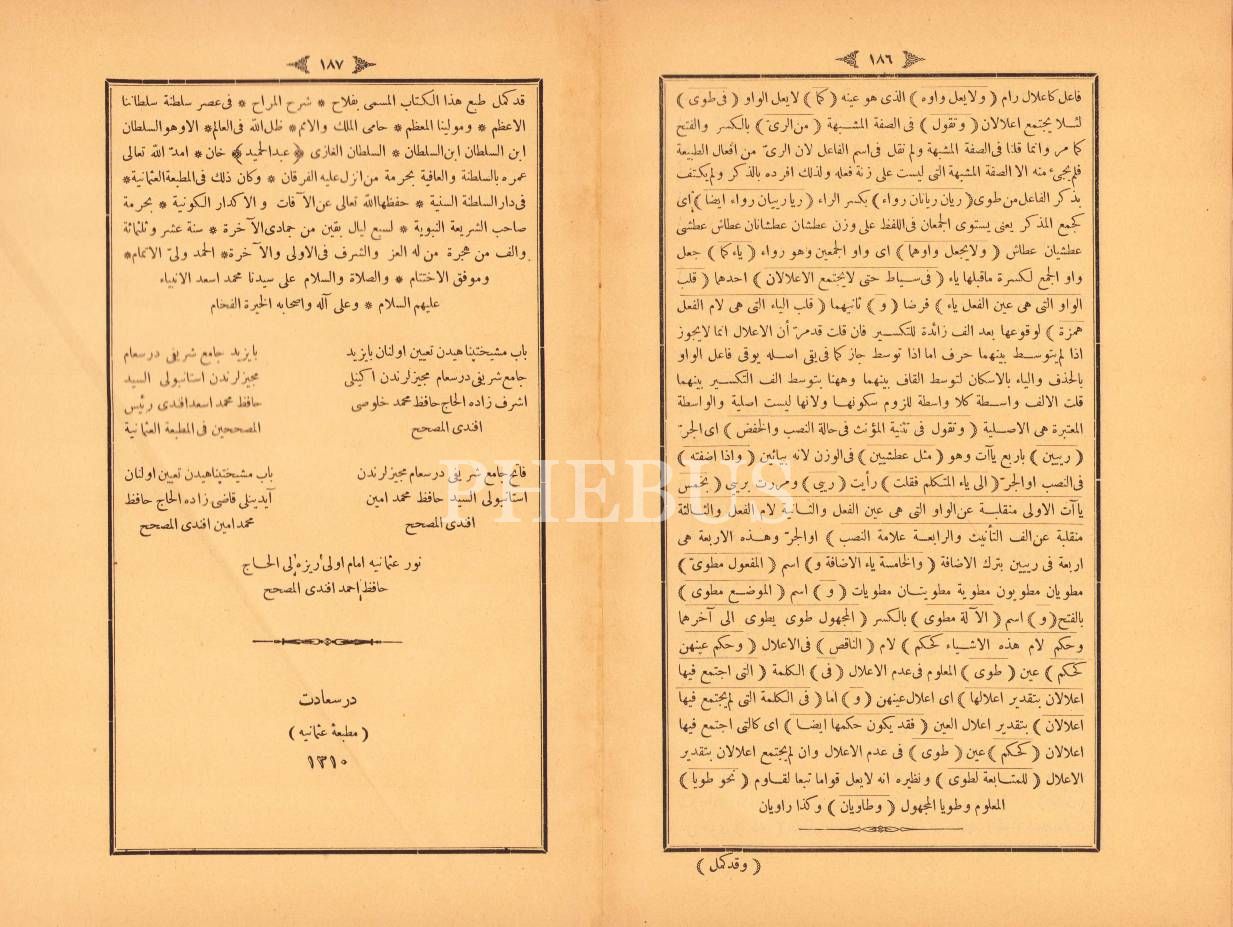 ١٨٦
فاعل كاعلال رام ( ولايعل واوه ) الذى هو عينه ( كما ) لايعل الواو ( فى طوى )
لئلا يجتمع اعلالان ( وتقول ) فى الصفة المشبهة ( من الرىّ ) بالكسر والفتح
كما مر وانما قلنا فى الصفة المشبهة ولم تقل فى اسم الفاعل لان الرىّ من افعال الطبيعة
فلم يجئ منه الا الصفة المشبهة التى ليست على زنة فعله ولذلك افرده بالذكر ولم يكتف
بذكر الفاعل من طوى ( ريان ريانان رواء ) بكسر الراء ( ريا رييان رواء ايضا ) اى
كجمع المذكر يعنى يستوى الجمعان فى اللفظ على وزن عطشان عطشانان عطاش عطشى
عطشيان عطاش ( ولايجعل واوها ) اى واو الجمعين وهو رواء ( ياء كما ) جعل
واو الجمع لكسرة ماقبلها ياء ( فى سياط حتى لايجتمع الاعلالان ) احدها ( قلب
الواو التى هى عين الفعل ياء ) فرضا ( و ) ثانيهما ( قلب الياء التى هى لام الفعل
همزة ) لوقوعها بعد الف زائدة للتكسير فان قلت قدمرّ أن الاعلال انما لايجوز
اذا لم يتوسط بينهما حرف اما اذا توسط جاز كما فى يقى اصله يوقى فاعل الواو
بالحذف والياء بالاسكان لتوسط القاف بينهما وههنا بتوسط الف التكسير بينهما
قلت الالف واسطة كلا واسطة للزوم سكونها ولانها ليست اصلية والواسطة
المعتبرة هى الاصلية ( وتقول فى تثنية المؤنث فى حالة النصب والخفض ) اى الجرّ
( رييين ) باربع ياآت وهو ( مثل عطشيين ) فى الوزن لانه بيائين ( واذا اضفته )
فى النصب اوالجرّ ( الى ياء المتكلم فقلت ) رأيت ( ريى ) ومررت بريى ( بخمس
ياآت الاولى منقلبة عن الواو التى هى عين الفعل والثانية لام الفعل والثالثة
منقلبة عن الف التأنيث والرابعة علامة النصب ) اوالجرّ وهذه الاربعة هى
اربعة فى رييين بترك الاضافة ( والخامسة ياء الاضافة و ) اسم ( المفعول مطوىّ )
مطويان مطويون مطوية مطويتان مطويات ( و ) اسم ( الموضع مطوى )
بالفتح ( و ) اسم ( الآلة مطوى ) بالكسر ( المجهول طوى يطوى الى آخرهما
وحكم لام هذه الاشياء كحكم ) لام ( الناقص ) فى الاعلال ( وحكم عينهن
كحكم ) عين ( طوى ) المعلوم فى عدم الاعلال ( فى ) الكلمة ( التى اجتمع فيها
اعلالان بتقدير اعلالها ) اى اعلال عينهن ( و ) اما ( فى الكلمة التى لم يجتمع فيها
اعلالان ) بتقدير اعلال العين ( فقد يكون حكمها ايضا ) اى كالتى اجتمع فيها
اعلالان ( كحكم ) عين ( طوى ) فى عدم الاعلال وان لم يجتمع اعلالان بتقدير
الاعلال ( للمتابعة لطوى ) ونظيره انه لايعل قواما تبعا لقاوم ( نحو طويا )
المعلوم وطويا المجهول ( وطاويان ) وكذا راويان
( وقد كمل )
١٨٧
قد كمل طبع هذا الكتاب المسمى بفلاح * شرح المراح * فى عصر سلطنة سلطاننا
الاعظم * ومولينا المعظم * حامى الملك والامم * ظل الله فى العالم * الاوهو السلطان
ابن السلطان ابن السلطان * السلطان الغازى ( عبدالحميد ) خان * امدّ الله تعالى
عمره بالسلطنة والعافية بحرمة من انزل عليه الفرقان * وكان ذلك فى المطبعة العثمانية *
فى دار السلطنة السنية * حفظها الله تعالى عن الآفات والاكدار الكونية * بحرمة
صاحب الشريعة النبوية * لسبع ليال بقين من جمادى الآخرة * سنة عشر وثلثمائة
والف من هجرة من له العز والشرف فى الاولى والآخرة * الحمد ولىّ الاتمام *
وموفق الاختتام * والصلاة والسلام على سيدنا محمد اسعد الانبياء
عليهم السلام * وعلى آله واصحابه الخيرة الفخام
باب مشيختپناهيدن تعيين اولنان بايزيد
جامع شريفى درسعام مجيزلرندن اكينلى
اشرف زاده الحاج حافظ محمد خلوصى
افندى المصحح
بايزيد جامع شريفى درسعام
مجيزلرندن استانبولى السيد
حافظ محمد اسعد افندى رئيس
المصححين فى المطبعة العثمانية
فاتح جامع شريفى درسعام مجيزلرندن
استانبولى السيد حافظ محمد امين
افندى المصحح
باب مشيختپناهيدن تعيين اولنان
آيدينلى قاضى زاده الحاج حافظ
محمد امين افندى المصحح
نور عثمانيه امام اولى ريزه لى الحاج
حافظ احمد افندى المصحح
درسعادت
( مطبعۀ عثمانيه )
١٣١٠
PHEBUS